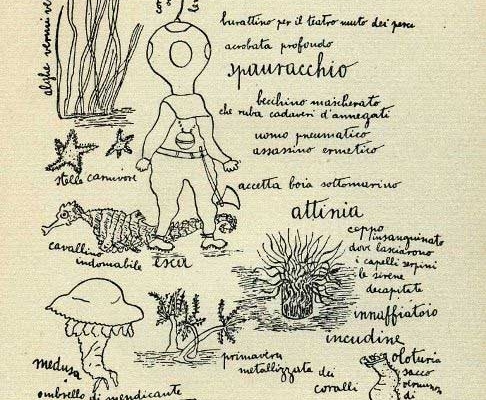 burattino per il teatro muto dei pesci
acrobata profondo
spauracchio
becchino mascherato
che ruba cadaveri d'annegati
uomo pneumatico
assassino ermetico
accetta boia sottomarino
alghe vermi
stelle carnivore
cavallino
indomabile
esca
attinia
ceppo
insanguinato
dove lasciarono
i capelli serpini
le sirene
decapitate
innaffiatoio
incudine
medusa
ombrello di mendicante
primavera
metallizzata dei
coralli
oloturia
sacco
di